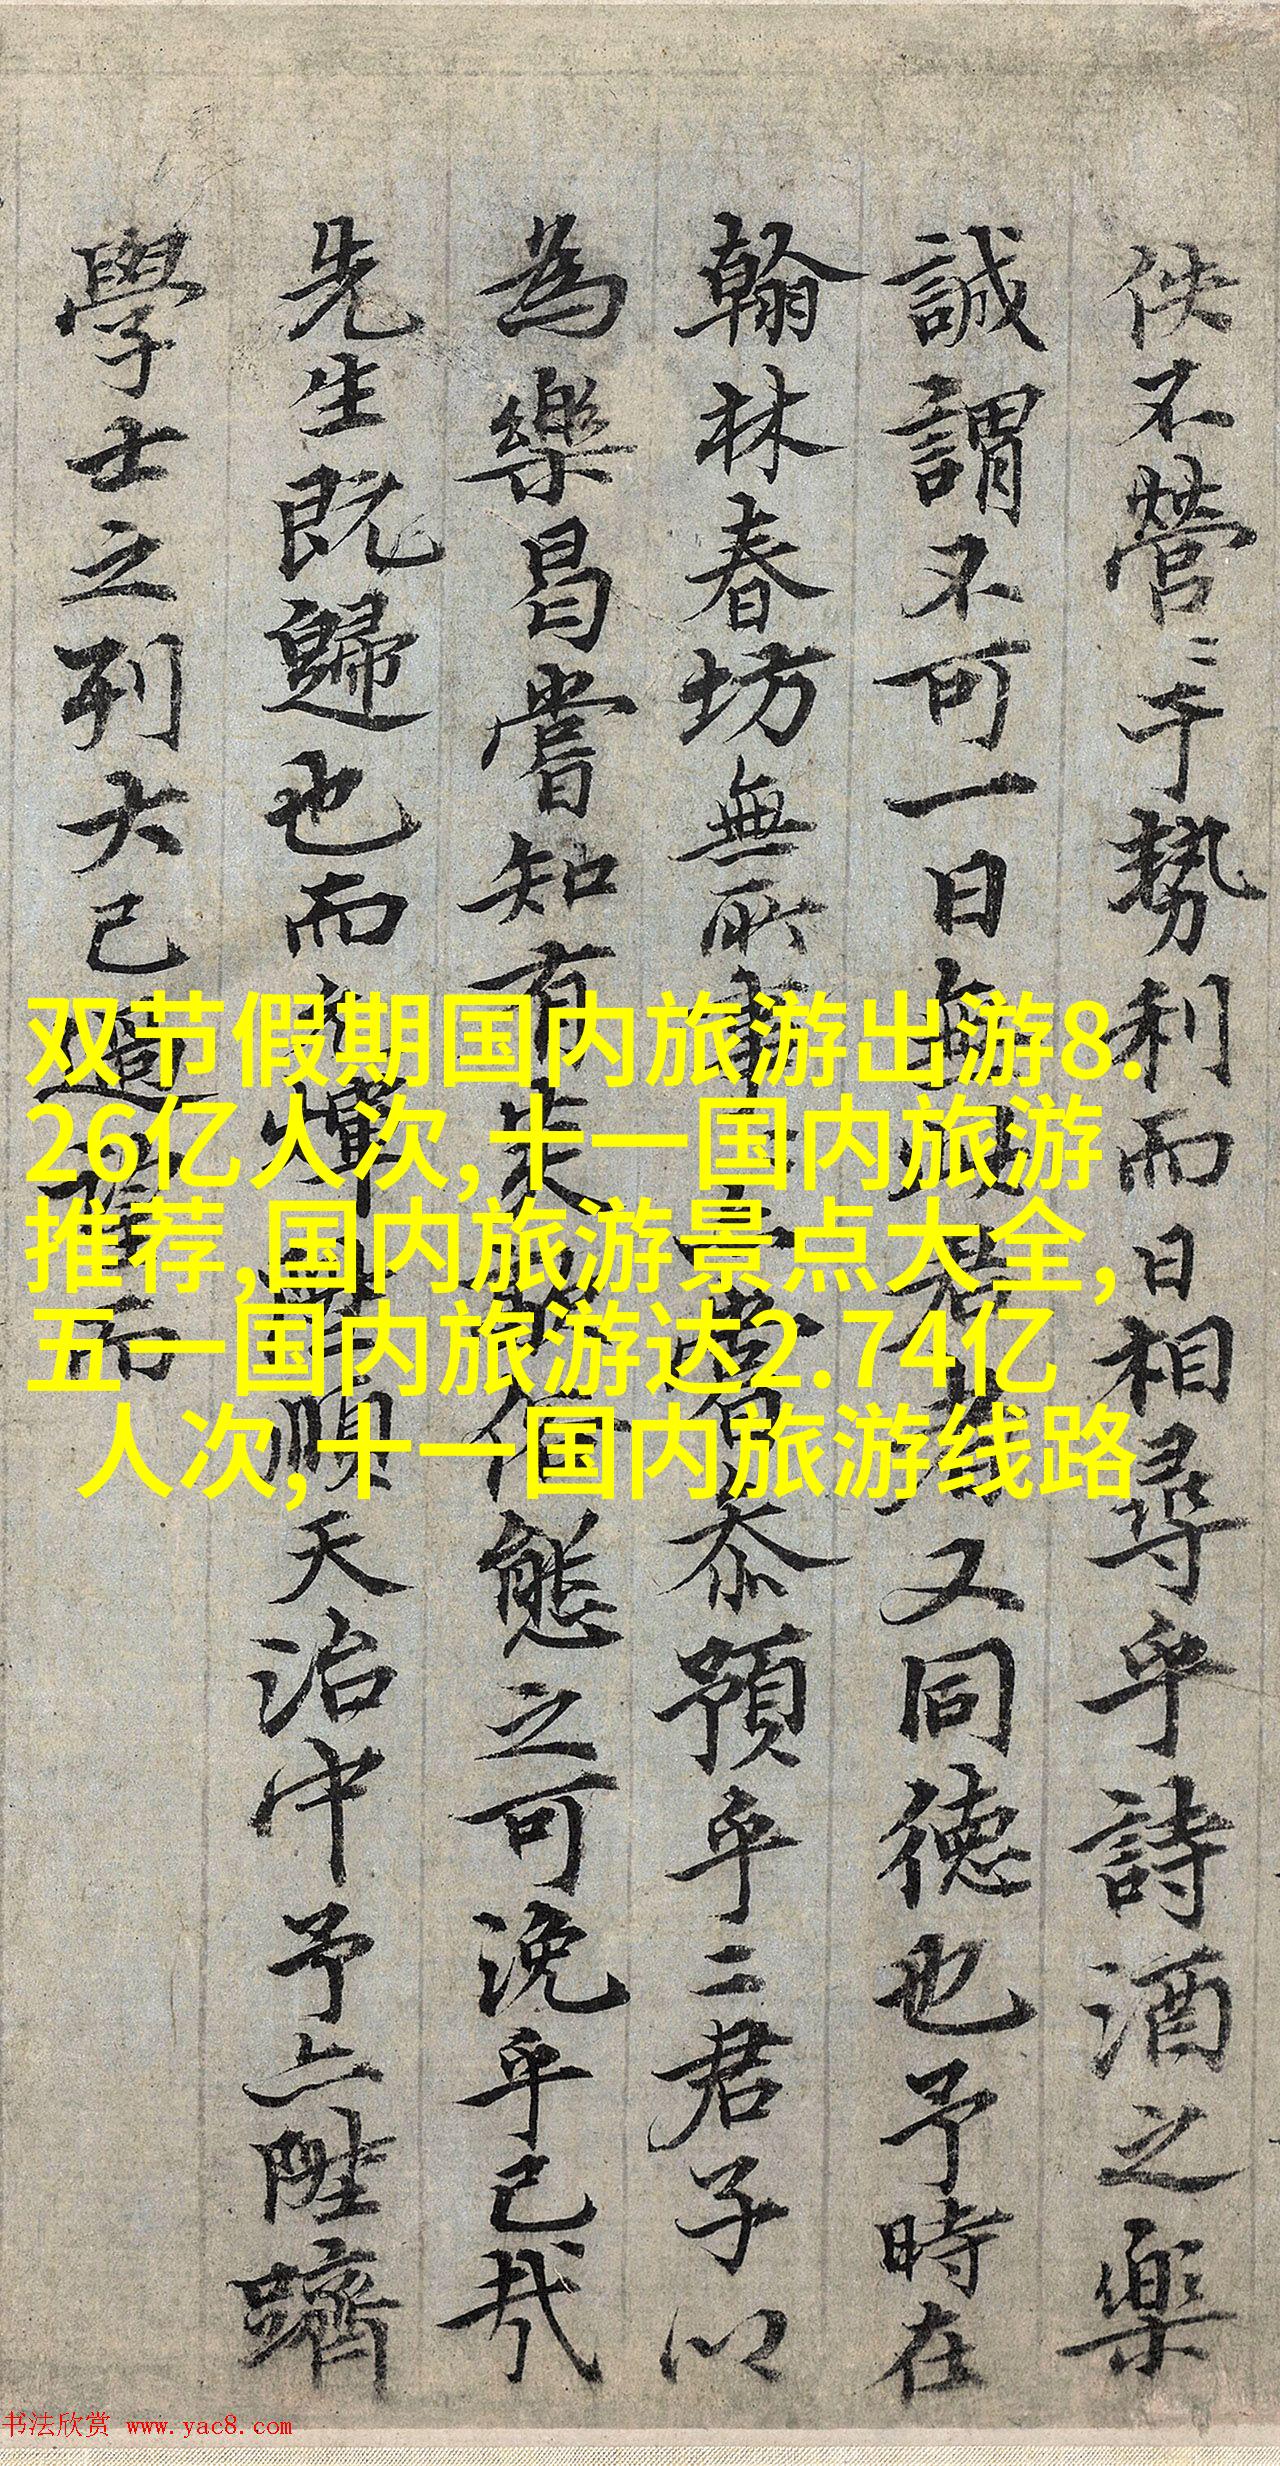 佚不營﹦于勢利而日相尋乎詩酒之樂
誠謂不可一日無此君者又同德也予時在
翰林春坊無所事事亦嘗忝預乎二君子以
為樂曷嘗知有炎俗態之可浼乎己哉
先生既歸也而順天治中予亦陞躋
學士之列大已而
双节假期国内旅游出游8.
26亿人次,十一国内旅游
推荐,国内旅游景点大全,
五一国内旅游达2.74亿
人次,十一国内旅游线路
书法欣赏 www.yac8.com